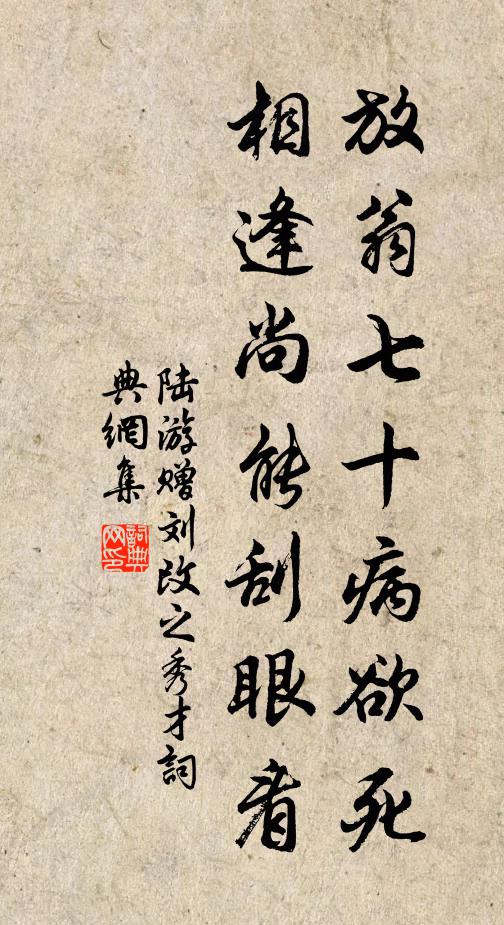 放翁七十病欲死
相逢尚能刮眼看
陆游赠刘改之秀才詞
典網集
詞典
网印